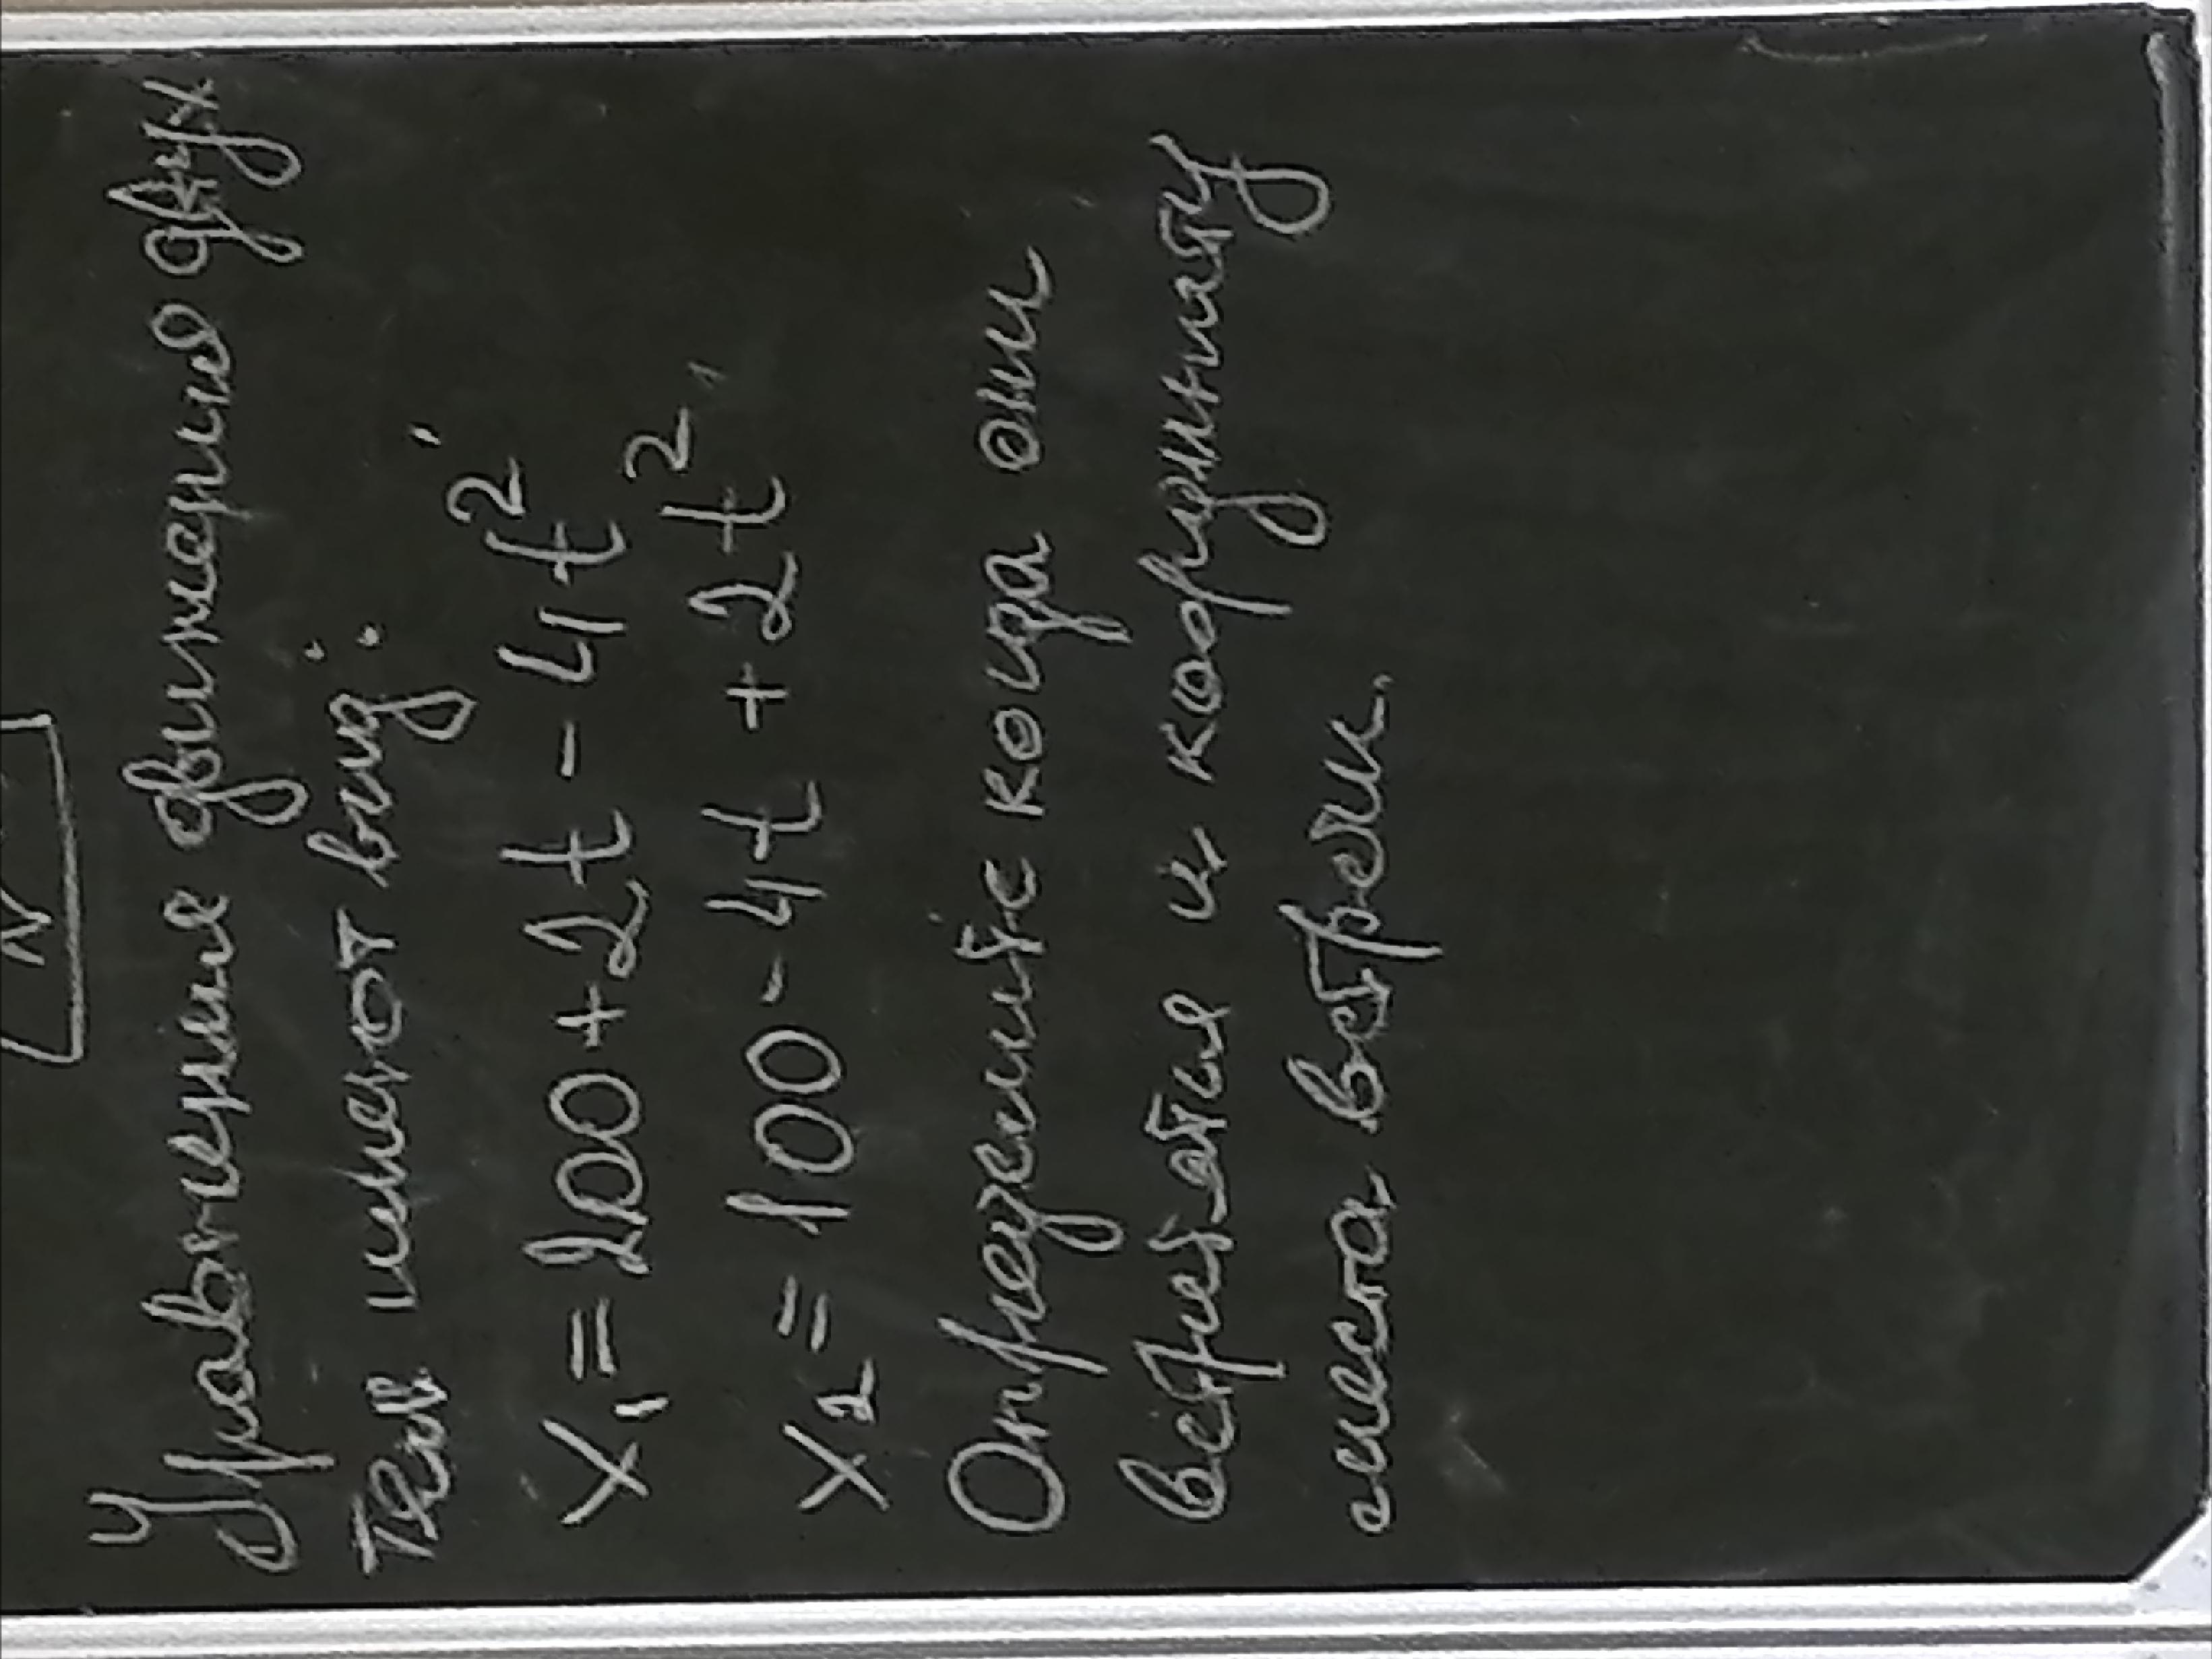 N
Уравнения движения двух
тел имеют вид:
x₁ = 200 + 2t - 4t²,
x₂ = 100 - 4t + 2t².
Определите когда они
встретятся и координату
места встречи.